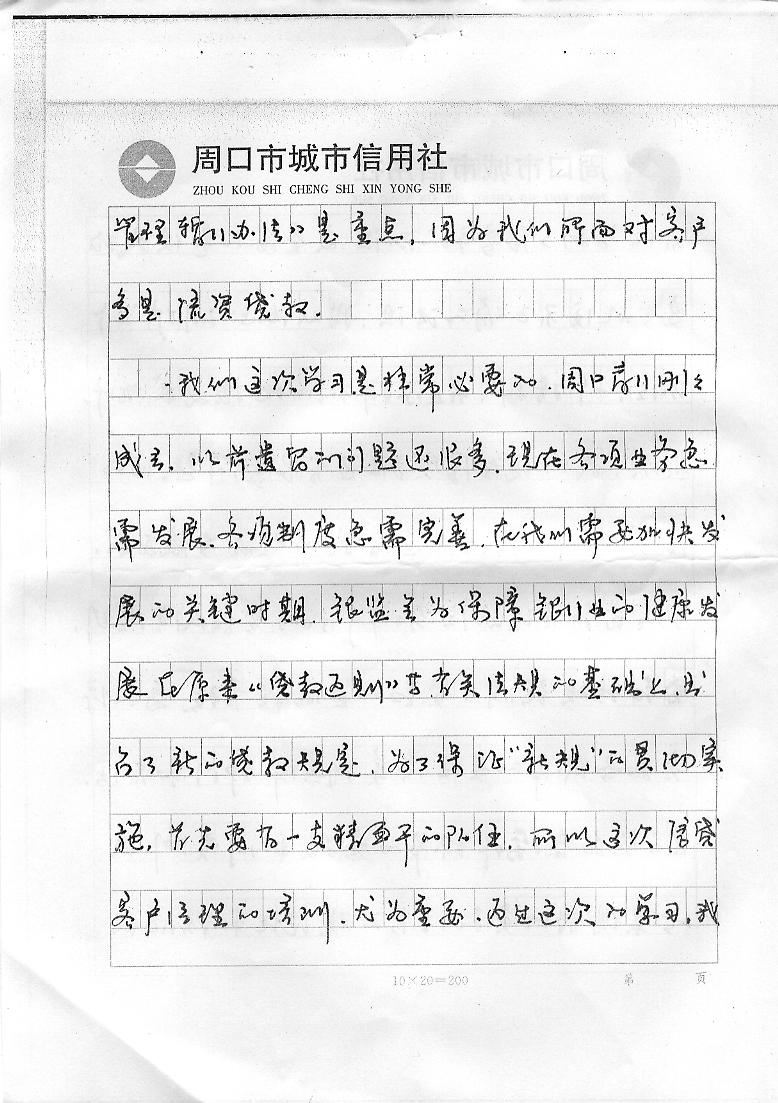 周口市城市信用社
ZHOU KOU SHI CHENG SHI XIN YONG SHE
管理暂行办法》是重点，因为我们所面对客户
多是流资贷款．
我们这次学习是非常必要的．周口商行刚々
成立．以前遗留的问题还很多．现在各项业务急
需发展．各项制度急需完善．在我们需要加快发
展的关键时期．银监会为保障银行业的健康发
展在原来《贷款通则》等有关法规的基础上．出
台了新的贷款规定．为了保证“新规”的贯彻实
施．首先要有一支精干的队伍．所以这次信贷
客户经理的培训．尤为重要．通过这次的学习．我
10×20=200
第 页